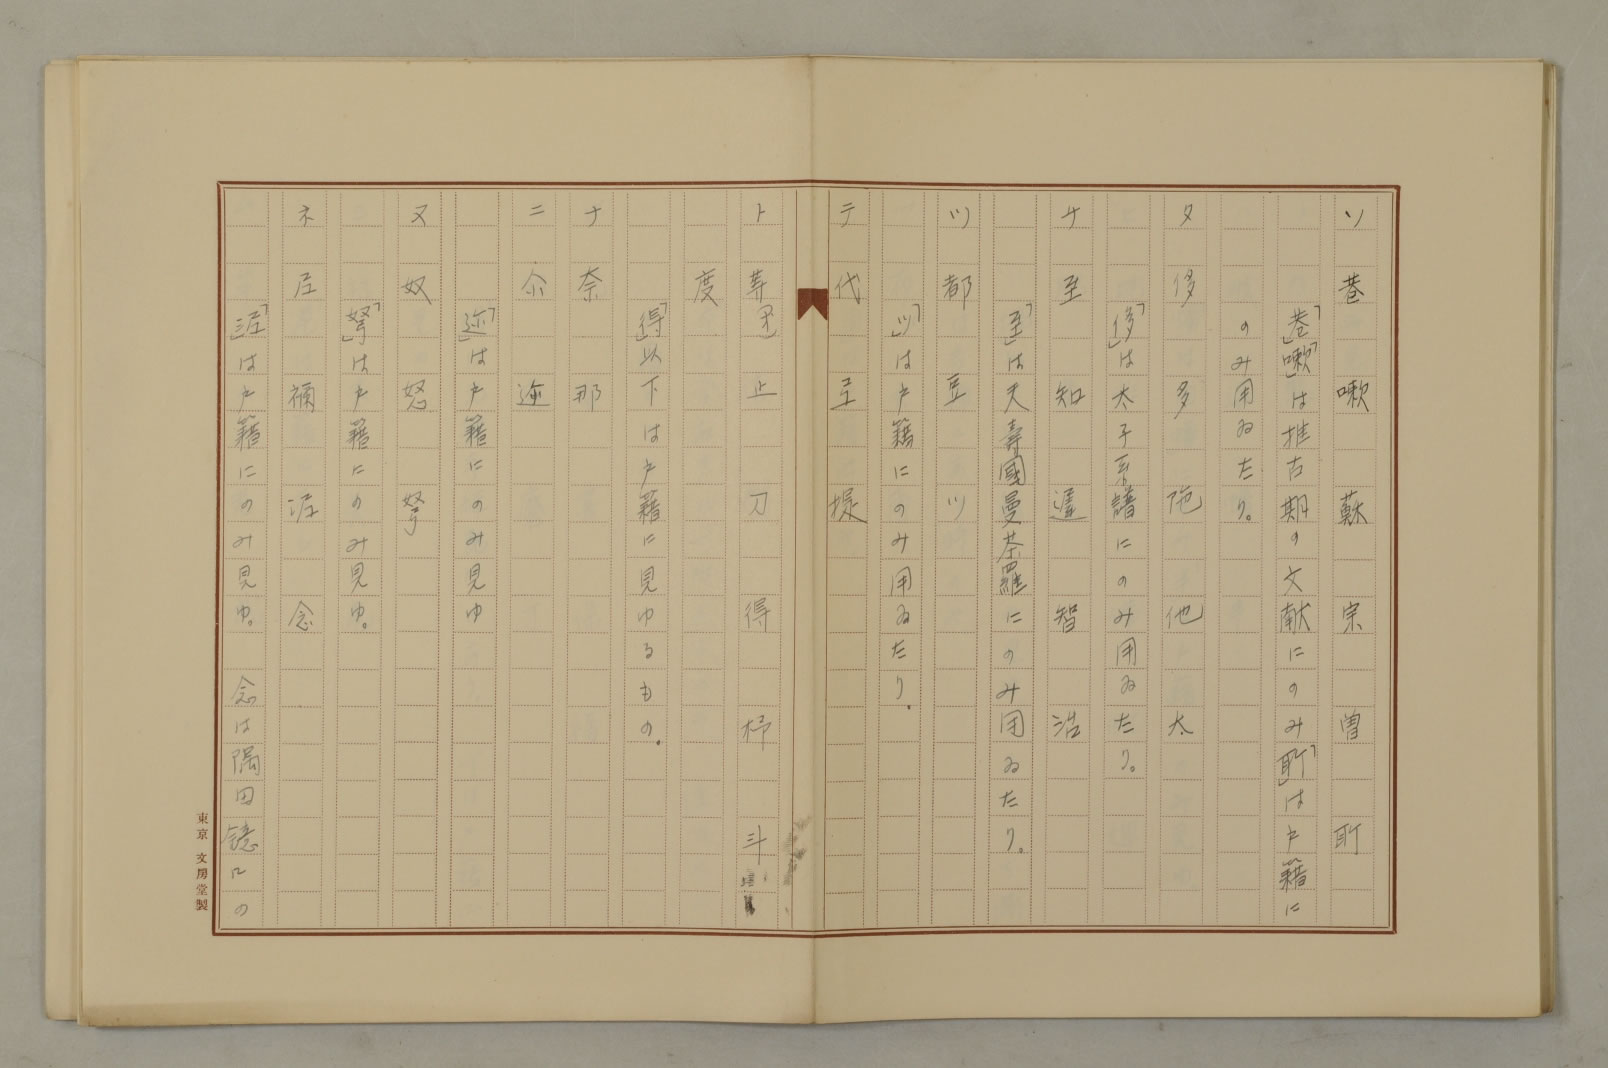 ソ 巷 嗽 蘇 宗 曽 耵
「巷」「嗽」は推古期の文献にのみ「耵」は戸籍に
のみ用ゐたり。
タ 侈 多 陁 他 太
「侈」は太子系譜にのみ用ゐたり。
チ 至 知 遅 智
「至」は天壽國曼荼羅にのみ用ゐたり。
ツ 都 豆 ツ
「ツ」は戸籍にのみ用ゐたり.
テ 代 提
ト 等 止 刀 得 斗
度
「得」以下は戸籍に見ゆるもの.
ナ 奈 那
ニ 尒 迩
「迩」は戸籍にのみ見ゆ
ヌ 奴 怒 弩
「弩」は戸籍にのみ見ゆ。
ネ 尼 禰 泥 念
「泥」は戸籍にのみ見ゆ。 念は隅田鏡にの
東京 文房堂製